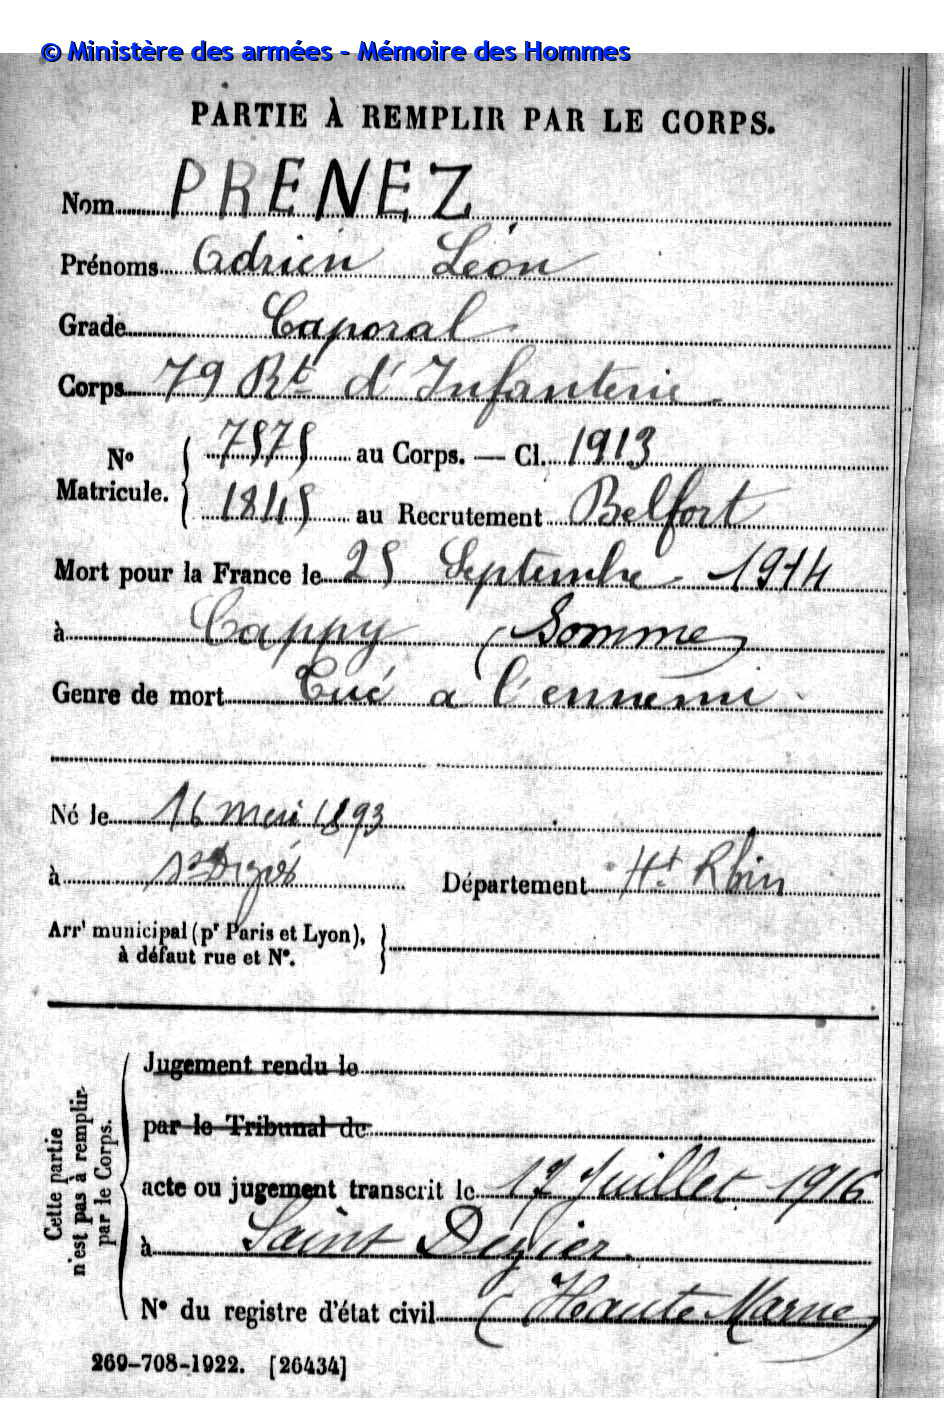 © Ministère des armées - Mémoire des Hommes
PARTIE À REMPLIR PAR LE CORPS.
Nom PRENEZ
Prénoms Adrien Léon
Grade Caporal
Corps 79 Rt d'Infanterie
N° Matricule. 7575 au Corps. — Cl. 1913
1845 au Recrutement Belfort
Mort pour la France le 25 Septembre 1914
à Cappy (Somme)
Genre de mort Tué a l'ennemi
Né le 16 mai 1893
à St Dizier Département Ht Rhin
Arrt municipal (pr Paris et Lyon),
à défaut rue et N°.
Cette partie
n'est pas à remplir
par le Corps.
Jugement rendu le
par le Tribunal de
acte ou jugement transcrit le 17 Juillet 1916
à Saint Dizier
N° du registre d'état civil (Haute Marne)
269-708-1922. [26434]